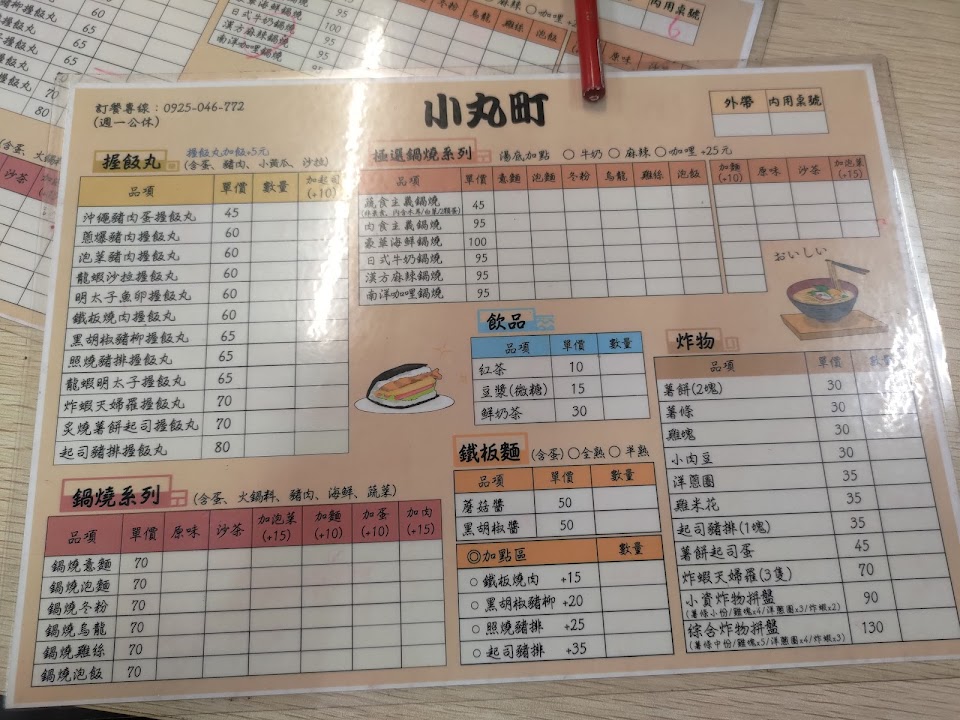 內用桌號
6
訂餐專線：0925-046-772
(週一公休)
小丸町
外帶 內用桌號
握飯丸 握飯丸加飯+5元
(含蛋、豬肉、小黃瓜、沙拉)
品項 單價 數量 加起司(+10)
沖繩豬肉蛋握飯丸 45
蔥爆豬肉握飯丸 60
泡菜豬肉握飯丸 60
龍蝦沙拉握飯丸 60
明太子魚卵握飯丸 60
鐵板燒肉握飯丸 60
黑胡椒豬柳握飯丸 65
照燒豬排握飯丸 65
龍蝦明太子握飯丸 65
炸蝦天婦羅握飯丸 70
炙燒薯餅起司握飯丸 70
起司豬排握飯丸 80
極選鍋燒系列 湯底加點 ○牛奶 ○麻辣 ○咖哩 +25元
品項 單價 意麵 泡麵 冬粉 烏龍 雞絲 泡飯 加麵(+10) 原味 沙茶 加泡菜(+15)
蔬食主義鍋燒 45
肉食主義鍋燒 95
豪華海鮮鍋燒 100
日式牛奶鍋燒 95
漢方麻辣鍋燒 95
南洋咖哩鍋燒 95
おいしい
飲品
品項 單價 數量
紅茶 10
豆漿(微糖) 15
鮮奶茶 30
炸物
品項 單價 數量
薯餅(2塊) 30
薯條 30
雞塊 30
小肉豆 30
洋蔥圈 35
雞米花 35
起司豬排(1塊) 35
薯餅起司蛋 45
炸蝦天婦羅(3隻) 70
小資炸物拼盤 90
(薯條小份/雞塊x4/洋蔥圈x3/炸蝦x2)
綜合炸物拼盤 130
(薯條中份/雞塊x5/洋蔥圈x4/炸蝦x3)
鐵板麵 (含蛋)○全熟○半熟
品項 單價 數量
蘑菇醬 50
黑胡椒醬 50
◎加點區 數量
○鐵板燒肉 +15
○黑胡椒豬柳 +20
○照燒豬排 +25
○起司豬排 +35
鍋燒系列 (含蛋、火鍋料、豬肉、海鮮、蔬菜)
品項 單價 原味 沙茶 加泡菜(+15) 加麵(+10) 加蛋(+10) 加肉(+15)
鍋燒意麵 70
鍋燒泡麵 70
鍋燒冬粉 70
鍋燒烏龍 70
鍋燒雞絲 70
鍋燒泡飯 70